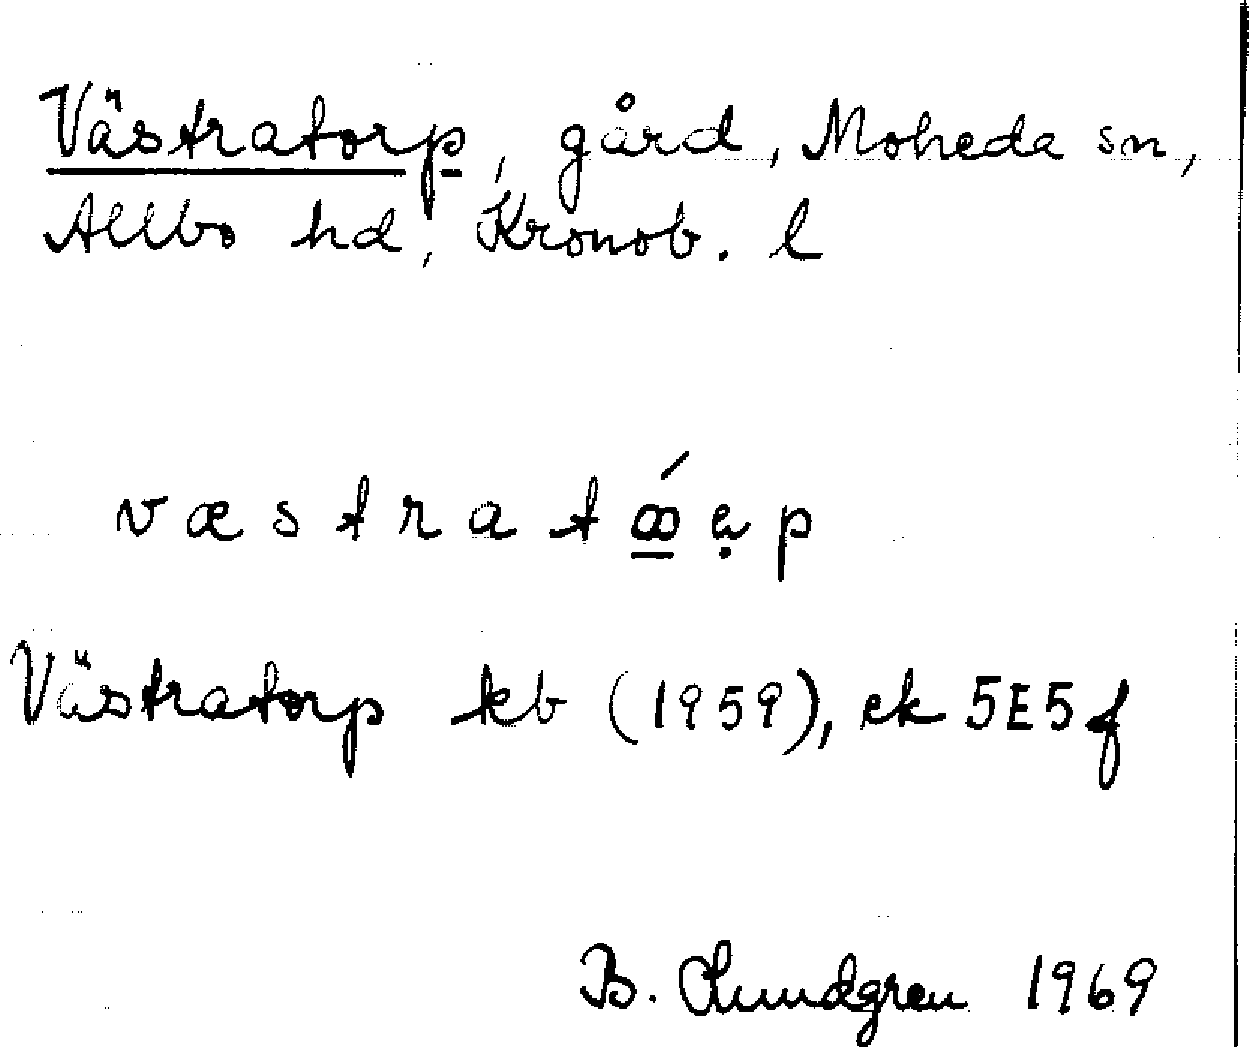 Västratorp, gård, Moheda sn,
Allbo hd, Kronob. l
væstratꝏ́ə̣p
Västratorp kb (1959), ek 5E5f
B. Lundgren 1969